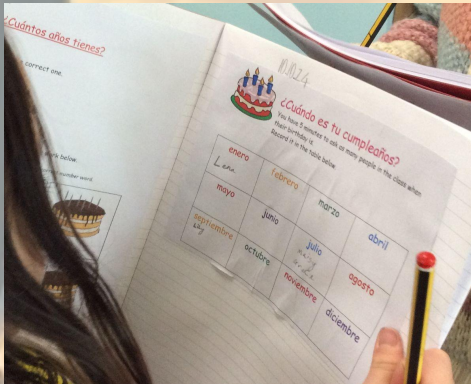 ¿Cuántos años tienes?
correct one.
below.
number word.
¿Cuándo es tu cumpleaños?
You have 5 minutes to ask as many people in the class when
their birthday is.
Record it in the table below.
enero
febrero
marzo
abril
mayo
junio
julio
agosto
septiembre
octubre
noviembre
diciembre